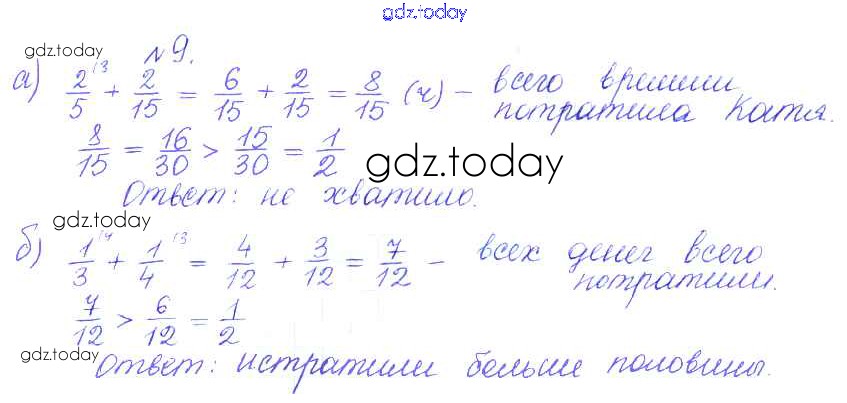 gdz.today
gdz.today
№9.
а) 2/5 ^(3 + 2/15 = 6/15 + 2/15 = 8/15 (ч) – всего времени
потратила Катя.
8/15 = 16/30 > 15/30 = 1/2
gdz.today
Ответ: не хватило.
gdz.today
б) 1/3 ^(4 + 1/4 ^(3 = 4/12 + 3/12 = 7/12 – всех денег всего
потратили.
7/12 > 6/12 = 1/2
gdz.today
Ответ: истратили больше половины.